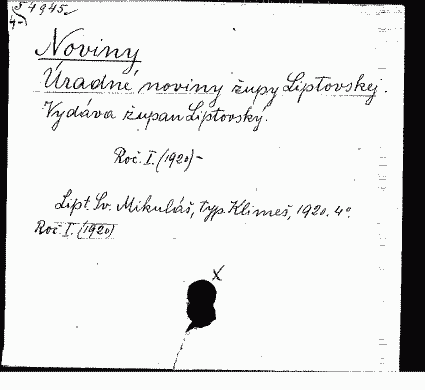 4945
4-
Noviny
Úradné noviny župy Liptovskej.
Vydáva župan Liptovský.
Roč. I. (1920) –
Lipt. Sv. Mikuláš, typ. Klimeš, 1920. 4°.
Roč. I. (1920)
X